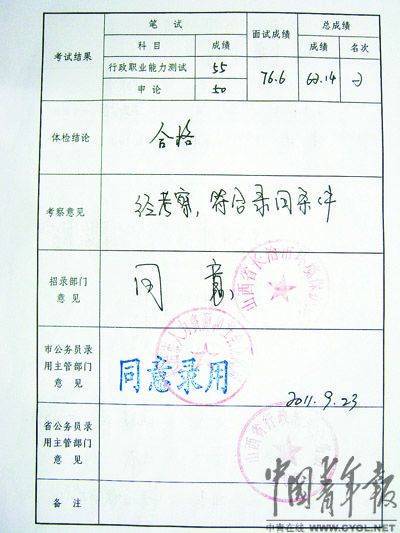 考试结果
笔 试
面试成绩
总成绩
科 目
成绩
成绩
名次
行政职业能力测试
55
76.6
63.14
2
申 论
50
体检结论
合格
考察意见
经考察，符合录用条件
招录部门
意 见
同意
山西省长治市
市公务员录
用主管部门
意 见
同意录用
2011.9.23
省公务员录
用主管部门
意 见
备 注
中国青年报
中青在线 WWW.CYOL.NET